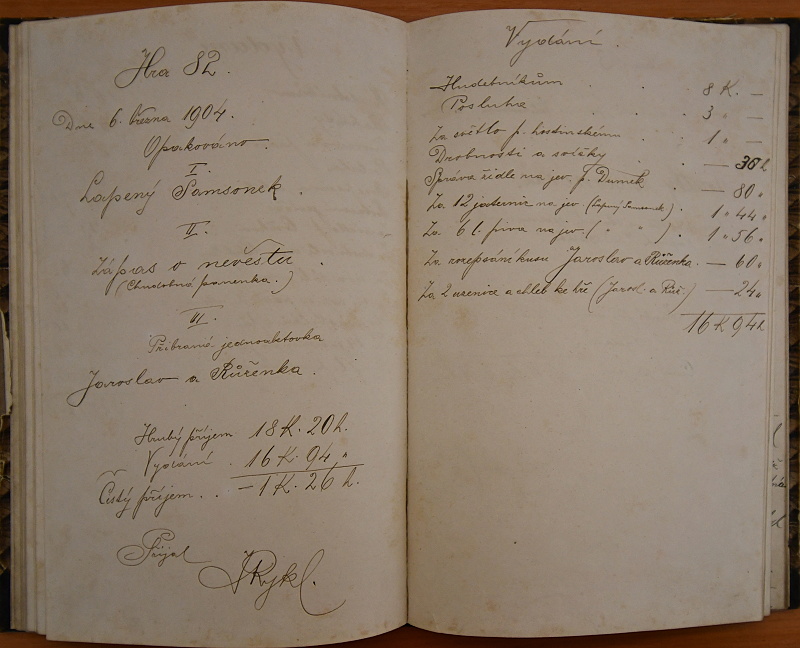 Hra 82.
Dne 6. března 1904.
Opakováno.
I.
Lapený Samsonek.
II.
Zápas o nevěstu.
(Chudobná panenka.)
III.
Přibraná jednoaktovka
Jaroslav a Růženka.
Hrubý příjem 18 K. 20 h.
Vydání . 16 K. 94 "
Čistý příjem . . – 1 K. 26 h.
Přijal
JRykl.
Vydání.
Hudebníkům . . 8 K. —
Posluha . . 3 " —
Za světlo p. hostinskému . 1 " —
Drobnosti a sošky . . — 30 h
Správa židle na jev. p. Dumek — 80 "
Za 12 jaternic na jev. (Lapený Samsonek) . 1 " 44 "
Za 6 l. piva na jev. ( " " ) . 1 " 56 "
Za rozepsání kusu Jaroslav a Růženka. — 60 "
Za 2 uzenice a chleb ke hře (Jarosl. a Růž.) — 24 "
16 K 94 h